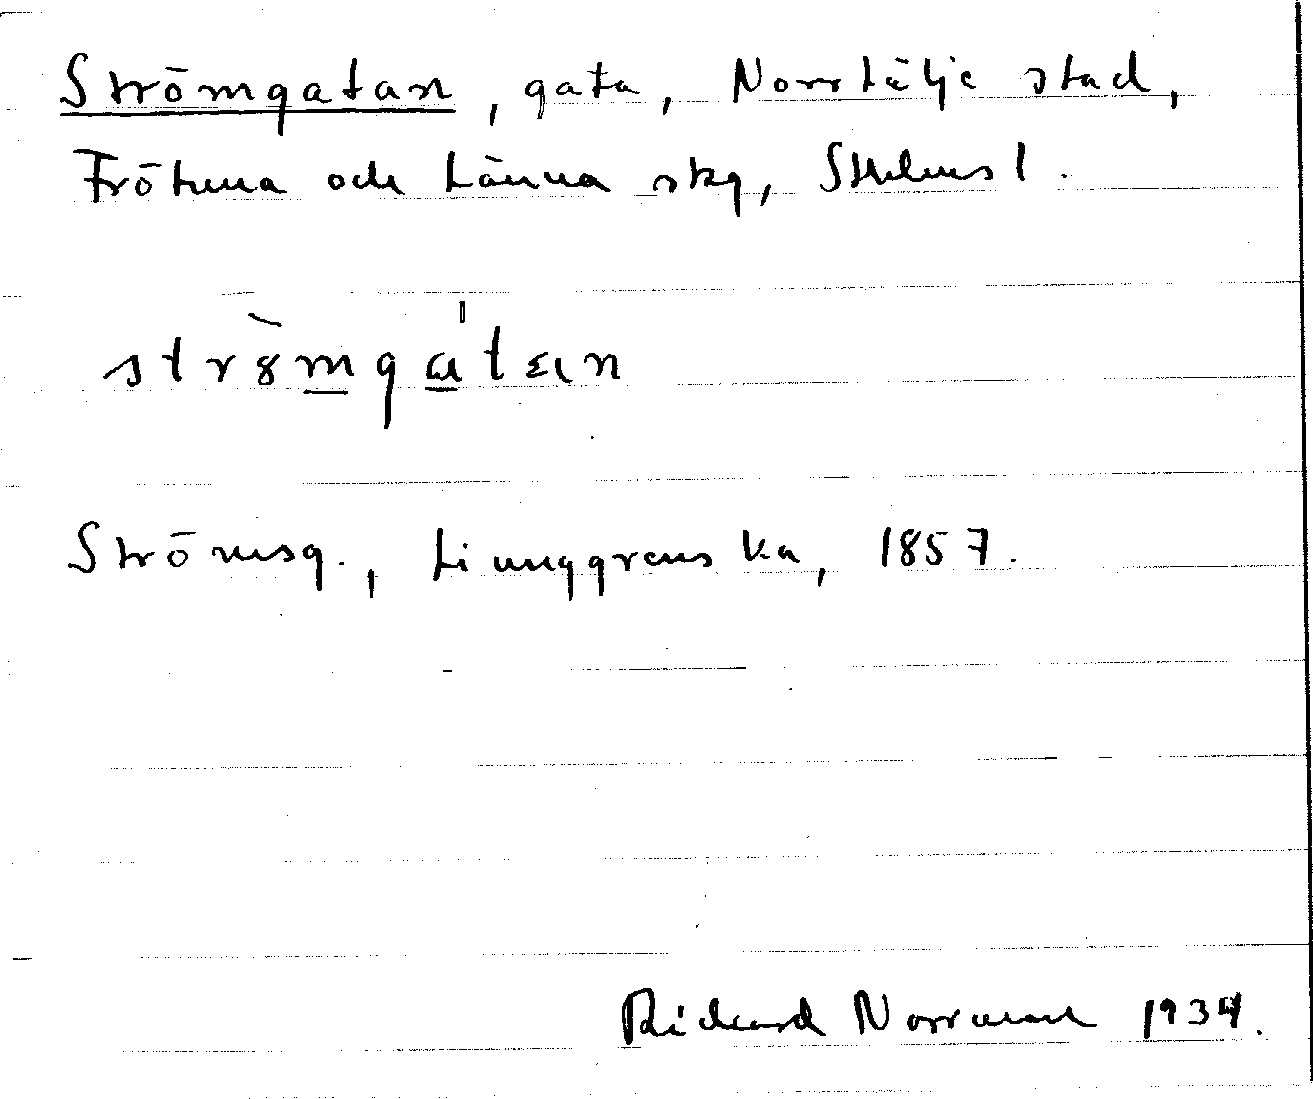 Strömgatan, gata, Norrtälje stad,
Frötuna och Länna skg, Sthlms l.
strömgatan
Strömsg., Ljunggrens ka, 1857.
Rickard Norrman 1934.